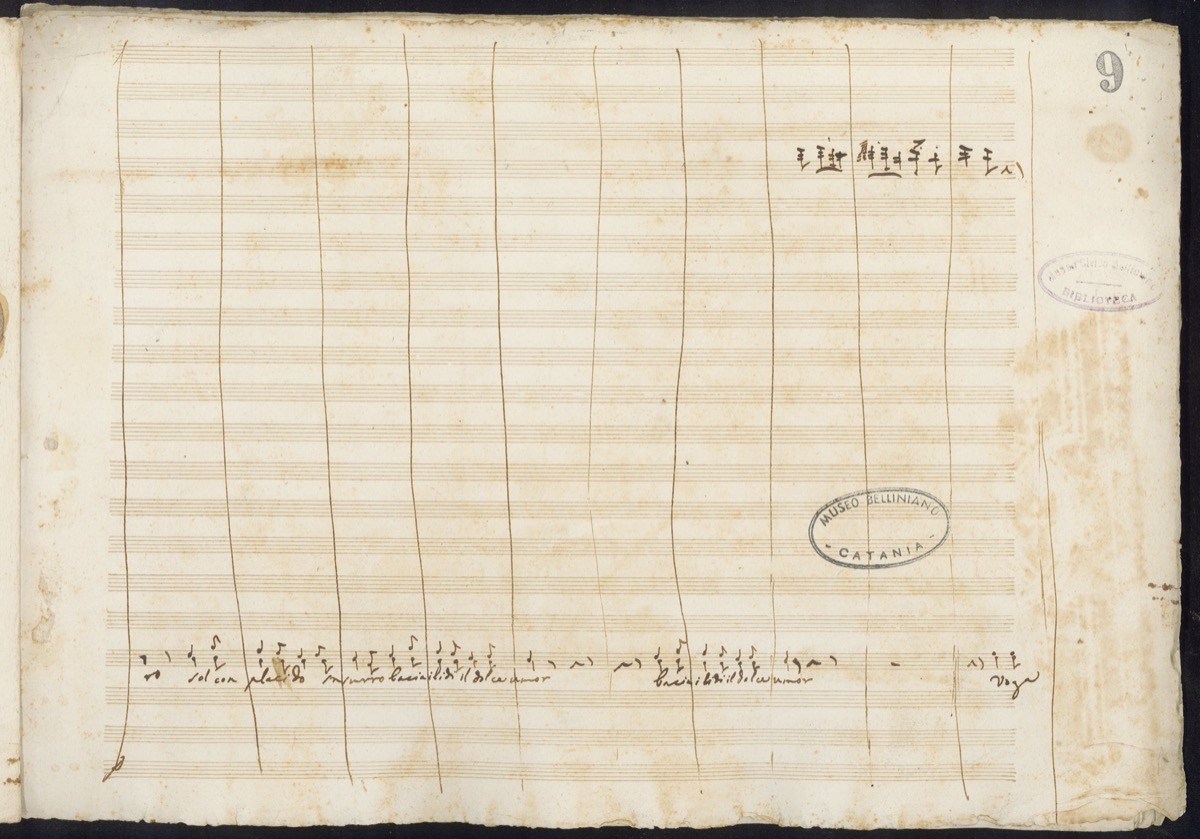 9
BIBLIOTECA
MUSEO BELLINIANO
- CATANIA -
ro sol con placido susurro bacia i lidi il dolce umor bacia i lidi il dolce umor Voga